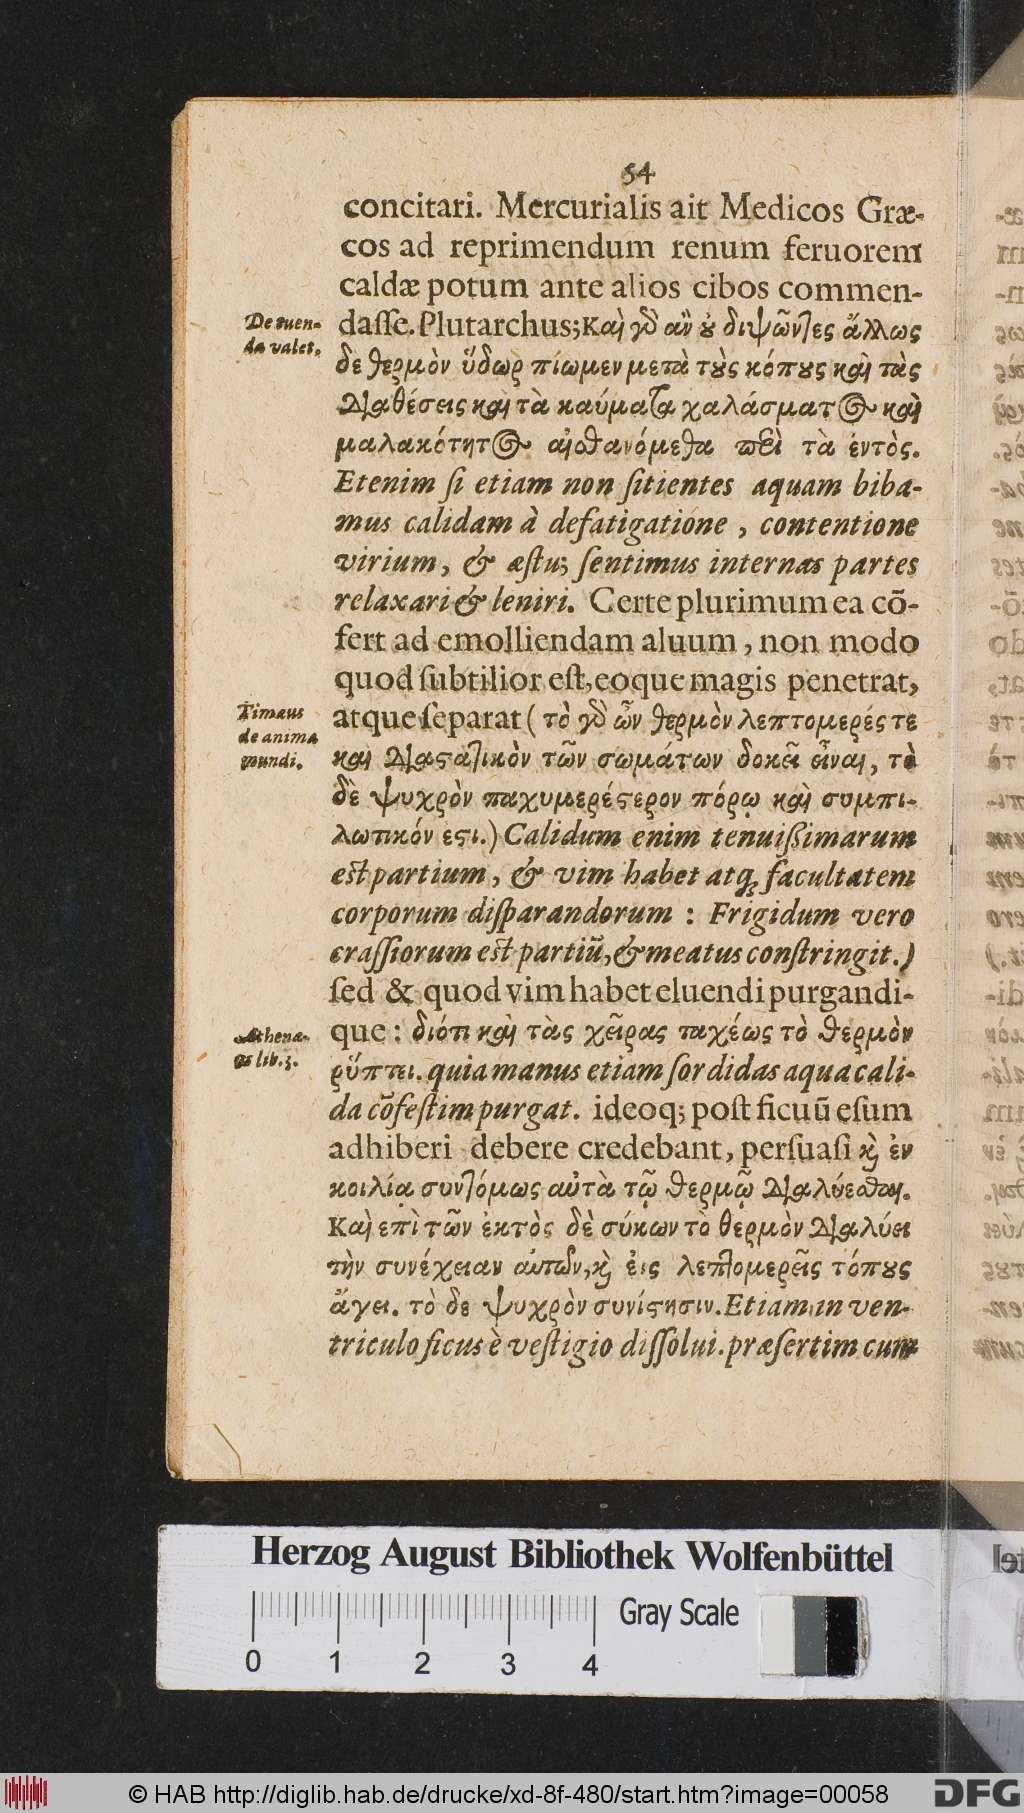 54
concitari. Mercurialis ait Medicos Græ-
cos ad reprimendum renum feruorem
caldæ potum ante alios cibos commen-
De tuen-
da valet.
daſſe. Plutarchus; Καὶ γδ ἂν ȣ διψῶντες ἄλλως
δε θερμὸν ὕδωρ πίωμεν μετὰ τȣ̀ς κόπȣς καὶ τὰς
Διαθέσεις καὶ τὰ καύματα χαλάσματ@ καὶ
μαλακότητ@ αἰσθανόμεθα περὶ τὰ ἐντὸς.
Etenim ſi etiam non ſitientes aquam biba-
mus calidam à defatigatione, contentione
virium, & æſtu; ſentimus internas partes
relaxari & leniri. Certe plurimum ea cõ-
fert ad emolliendam aluum, non modo
quod ſubtilior eſt, eoque magis penetrat,
Timæus
de anima
mundi.
atque ſeparat ( τὸ γδ ὦν θερμὸν λεπτομερές τε
καὶ Διαςατικὸν τῶν σωμάτων δοκεῖ εἶναι, τὸ
δὲ ψυχρὸν παχυμερέςερον πόρῳ καὶ συμπι-
λωτικόν εςι.) Calidum enim tenuißimarum
eſt partium, & vim habet atq; facultatem
corporum diſparandorum : Frigidum vero
craſſiorum eſt partiũ, & meatus conſtringit.)
ſed & quod vim habet eluendi purgandi-
Athenæ-
us lib. 3.
que : διότι καὶ τὰς χεῖρας ταχέως τὸ θερμὸν
ρύπτει. quia manus etiam ſordidas aqua cali-
da cõfeſtim purgat. ideoq; poſt ficuũ eſum
adhiberi debere credebant, perſuaſi ϗ̀ ἐν
κοιλίᾳ συντόμως αὐτὰ τῷ θερμῷ Διαλύεσθαι.
Καὶ επὶ τῶν ἐκτὸς δὲ σύκων τὸ θερμὸν Διαλύει
τὴν συνέχειαν αὐτῶν, ϗ̀ εἰς λεπτομερεῖς τόπȣς
ἄγει. τὸ δε ψυχρὸν συνίςησιν. Etiam in ven-
triculo ficus è veſtigio diſſolui. præſertim cum
Herzog August Bibliothek Wolfenbüttel
Gray Scale
0 1 2 3 4
© HAB http://diglib.hab.de/drucke/xd-8f-480/start.htm?image=00058
DFG